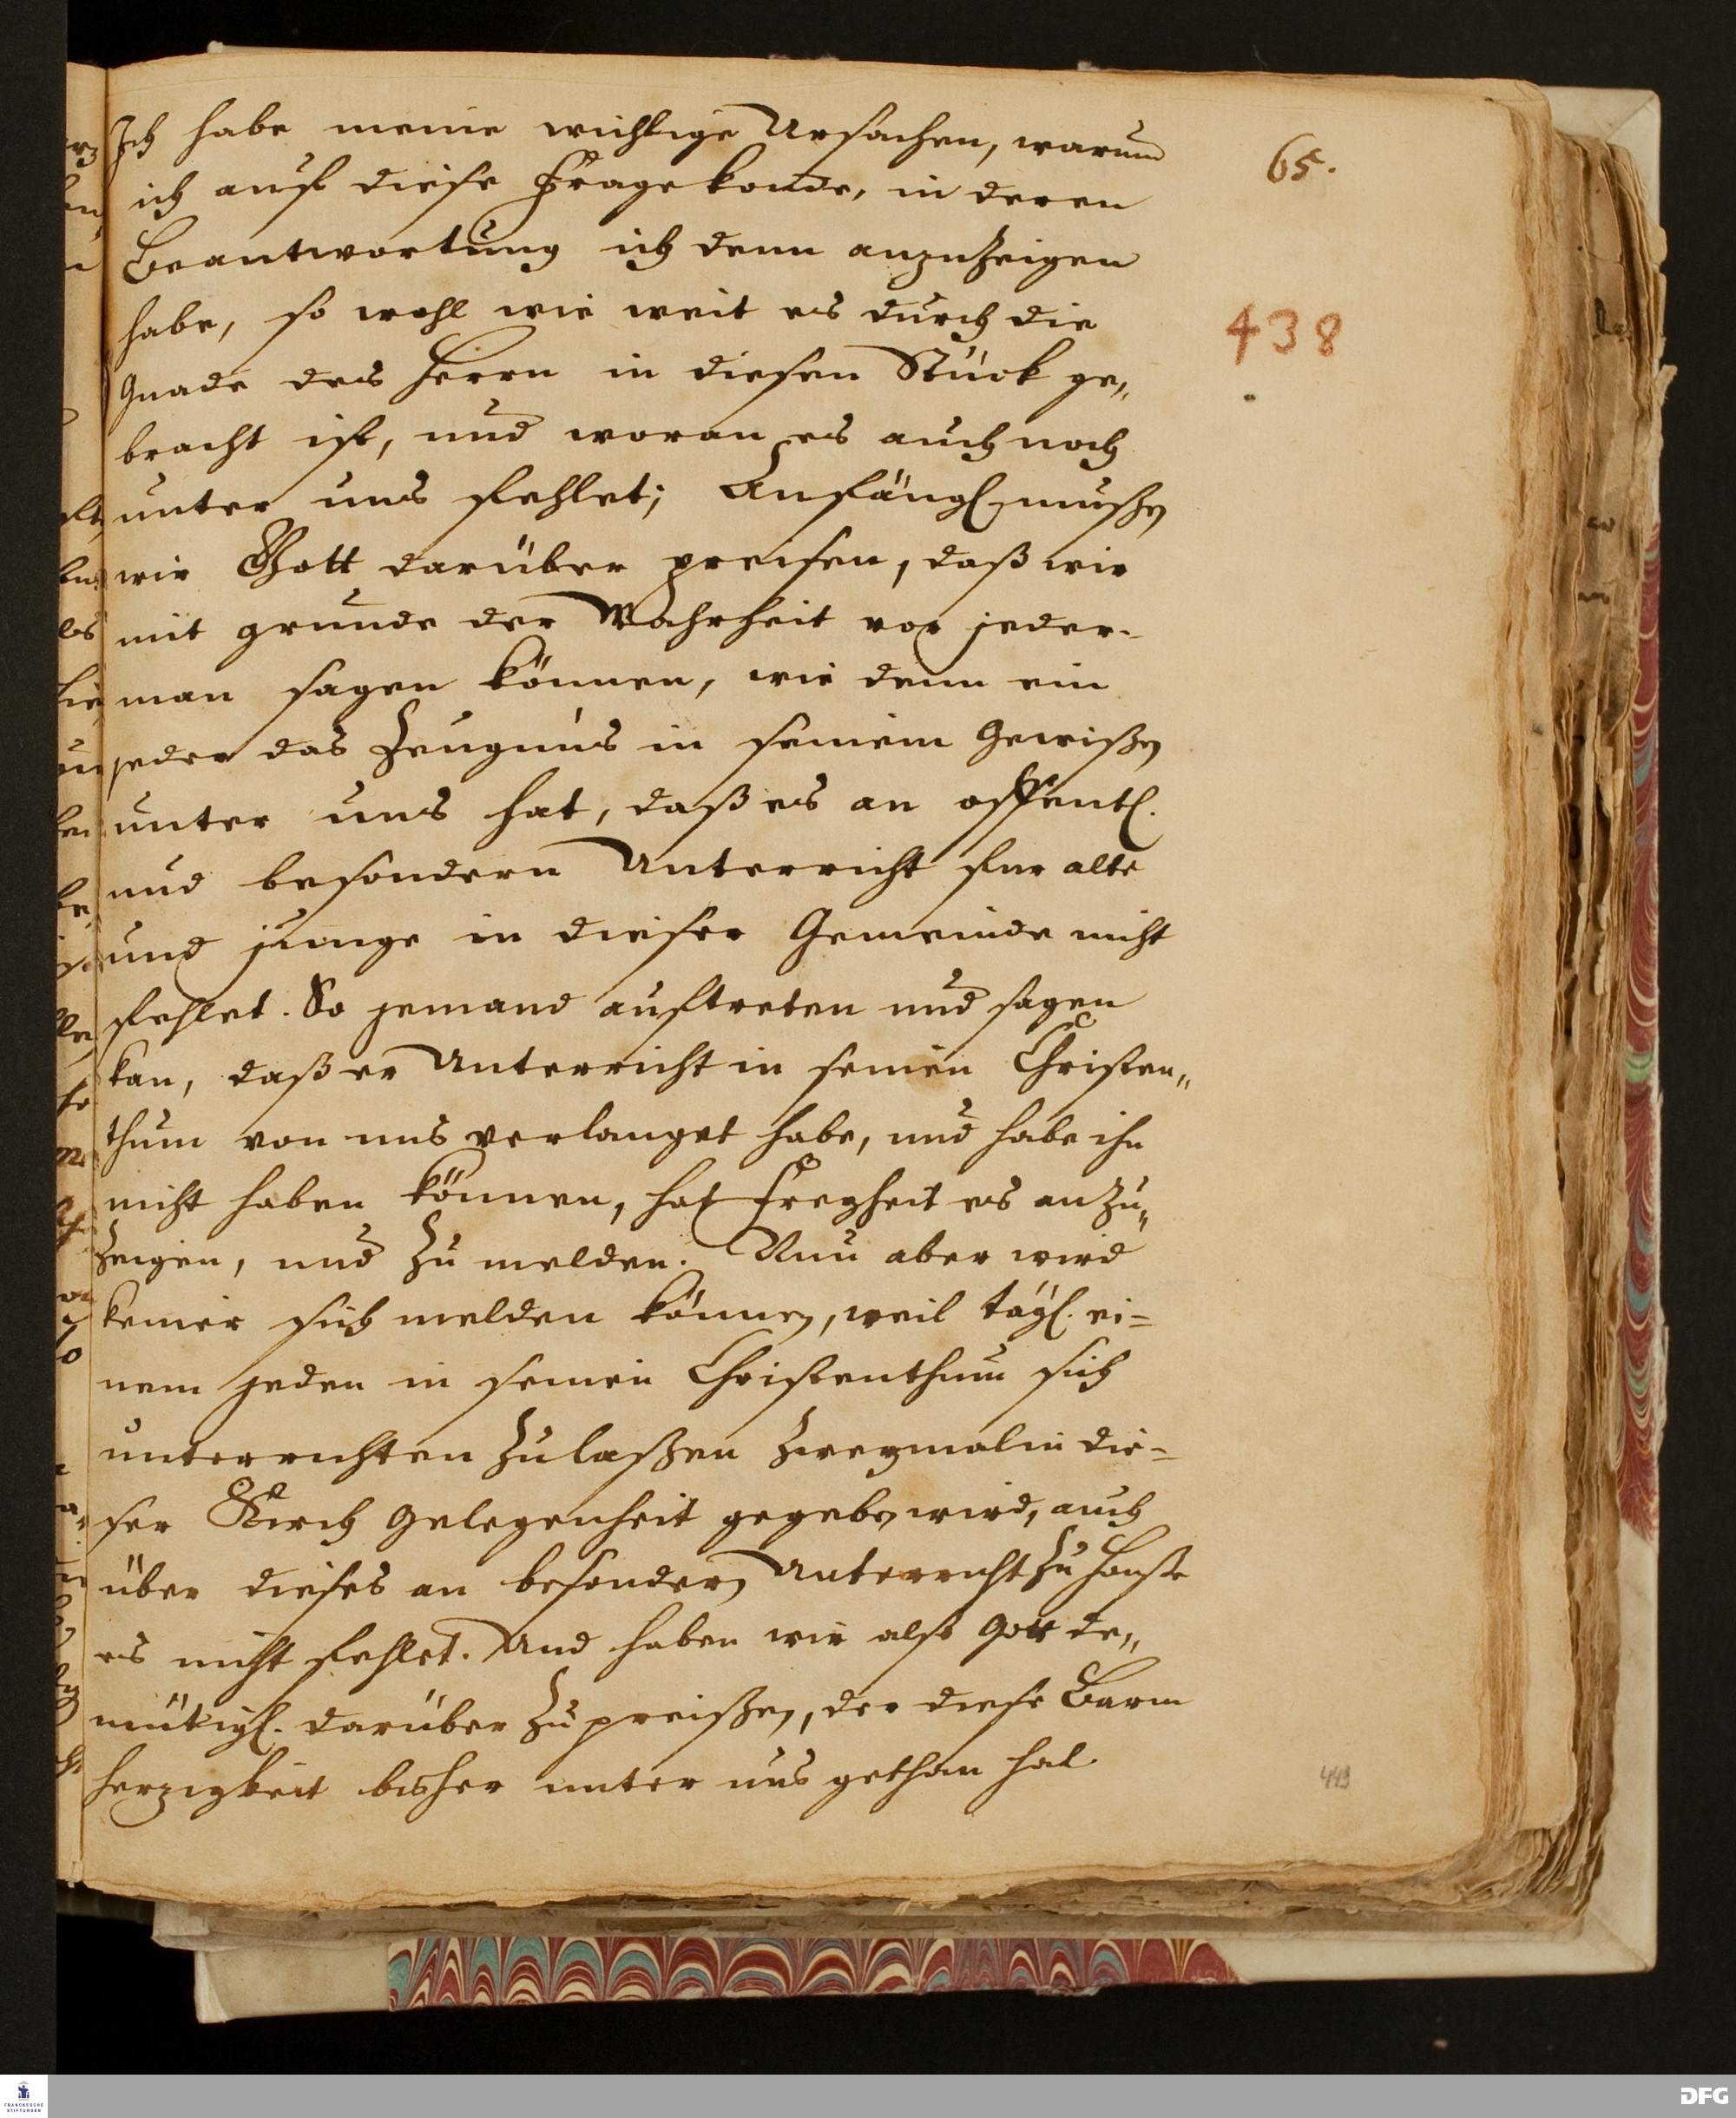 65.
438
Ich habe meine wichtige Ursachen, warum
ich auf diese Frage komme, in deren
Beantwortung ich denn anzuzeigen
habe, so wohl wie weit es durch die
Gnade des Herrn in diesen Stück ge„
bracht ist, und woran es auch noch
unter uns fehlet; Anfängl. mußen
wir Gott darüber preisen, daß wir
mit grunde der Wahrheit vor jeder-
man sagen können, wie denn ein
jeder das Zeugnüs in seinem Gewißen
unter uns hat, daß es an offentl.
und besondern Unterricht fur alte
und junge in dieser Gemeinde nicht
fehlet. So jemand auftreten und sagen
kan, daß er Unterricht in seinen Christen„
thum von uns verlanget habe, und habe ihn
nicht haben können, hat Freyheit es anzu„
zeigen, und zu melden. Nun aber wird
keiner sich melden können, weil tägl. ei=
nem jeden in seinen Christenthum sich
unterrichten zulaßen zweymal in die=
ser Kirch Gelegenheit gegeben wird, auch
über dieses an besondern Unterricht zu Hause
es nicht fehlet. Und haben wir also Gott de„
mütigl. darüber zu preißen, der diese Barm
herzigkeit bisher unter uns gethan hat
443
FRANCKESCHE
STIFTUNGEN
DFG